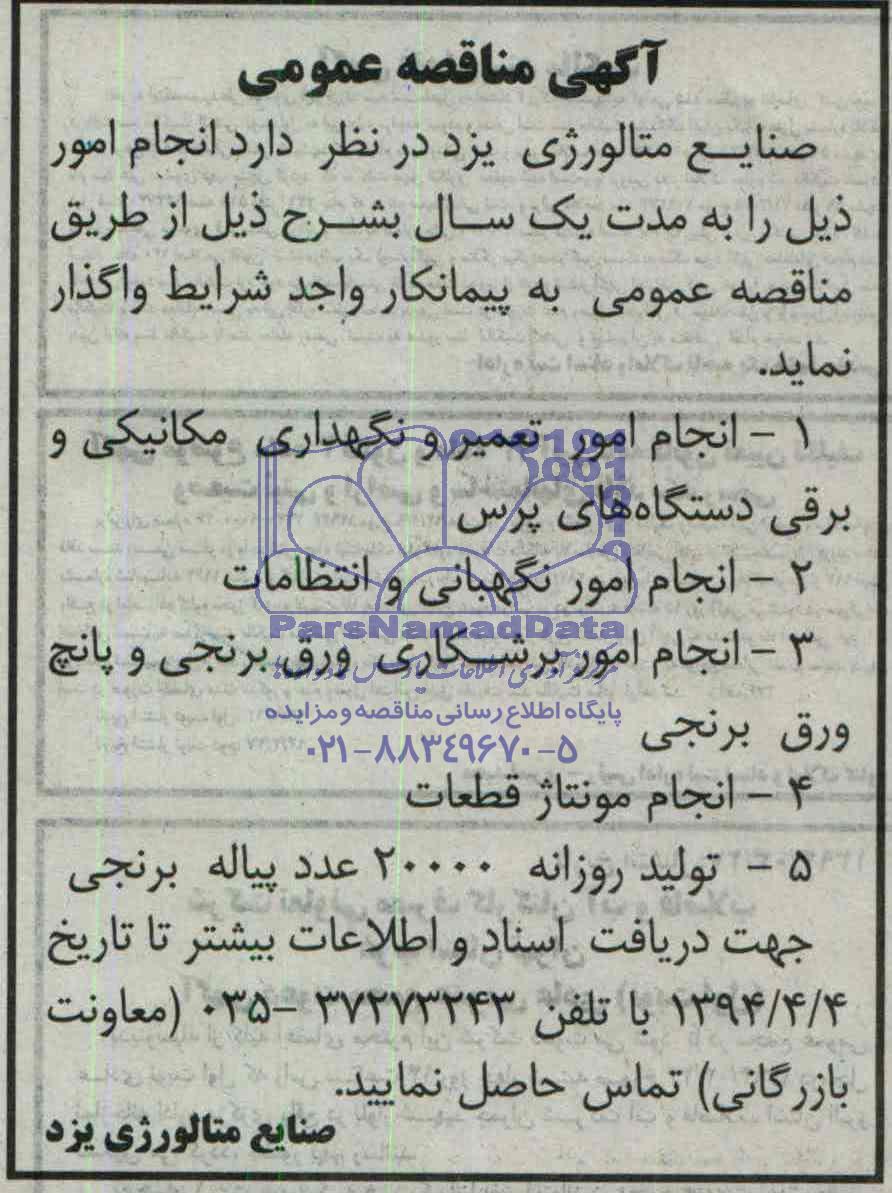 آگهی مناقصه عمومی
صنایع متالورژی یزد در نظر دارد انجام امور
ذیل را به مدت یک سال بشرح ذیل از طریق
مناقصه عمومی به پیمانکار واجد شرایط واگذار
نماید.
۱ - انجام امور تعمیر و نگهداری مکانیکی و
برقی دستگاه‌های پرس
۲ - انجام امور نگهبانی و انتظامات
ParsNamadData
۳ - انجام امور برشکاری ورق برنجی و پانچ
پایگاه اطلاع رسانی مناقصه و مزایده
ورق برنجی
۰۲۱-۸۸۳۴۹۶۷۰-۵
۴ - انجام مونتاژ قطعات
۵ - تولید روزانه ۲۰۰۰۰ عدد پیاله برنجی
جهت دریافت اسناد و اطلاعات بیشتر تا تاریخ
۱۳۹۴/۴/۴ با تلفن ۳۷۲۷۳۲۴۳ -۰۳۵ (معاونت
بازرگانی) تماس حاصل نمایید.
صنایع متالورژی یزد